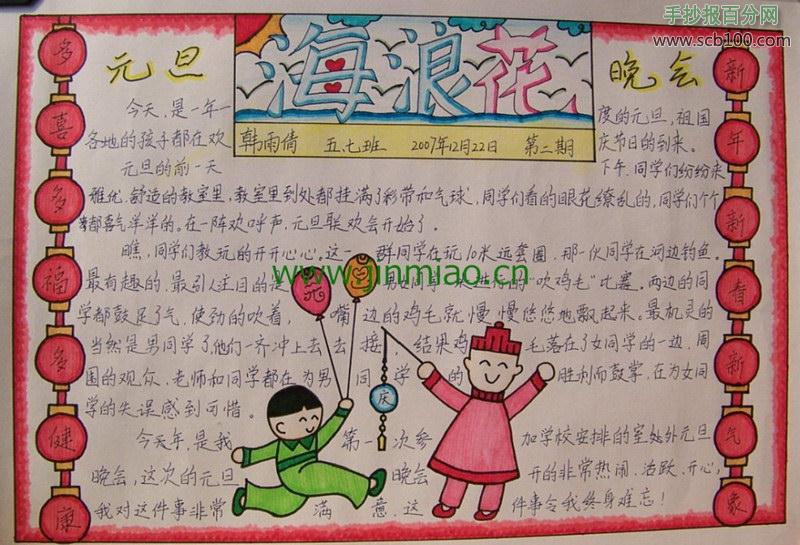 手抄报百分网
www.scb100.com
元旦
海浪花
晚会
韩雨倩 五、七班 2007年12月22日 第二期
今天,是一年一度的元旦,祖国
各地的孩子都在欢庆节日的到来。
元旦的前一天下午,同学们纷纷来
雅优、舒适的教室里,教室里到处都挂满了彩带和气球,同学们看的眼花缭乱的,同学们个个
都喜气洋洋的。在一阵欢呼声,元旦联欢会开始了。
瞧,同学们教玩的开开心心。这一群同学在玩10米远套圈,那一伙同学在河边钓鱼。
最有趣的,最引人注目的是 “吹鸡毛”比赛。两边的同
www.jinmiao.cn
学都鼓足了气,使劲的吹着,嘴边的鸡毛就慢慢悠悠地飘起来。最机灵的
当然是男同学了他们一齐冲上去去接,结果鸡毛落在了女同学的一边,周
围的观众、老师和同学都在为男同学的胜利而鼓掌,在为女同
学的失误感到可惜。
今天年,是我第一次参加学校安排的室处外元旦
晚会,这次的元旦晚会开的非常热闹、活跃、开心,
我对这件事非常满意,这件事令我终身难忘!
多喜多福多健康
新年新春新气象
庆